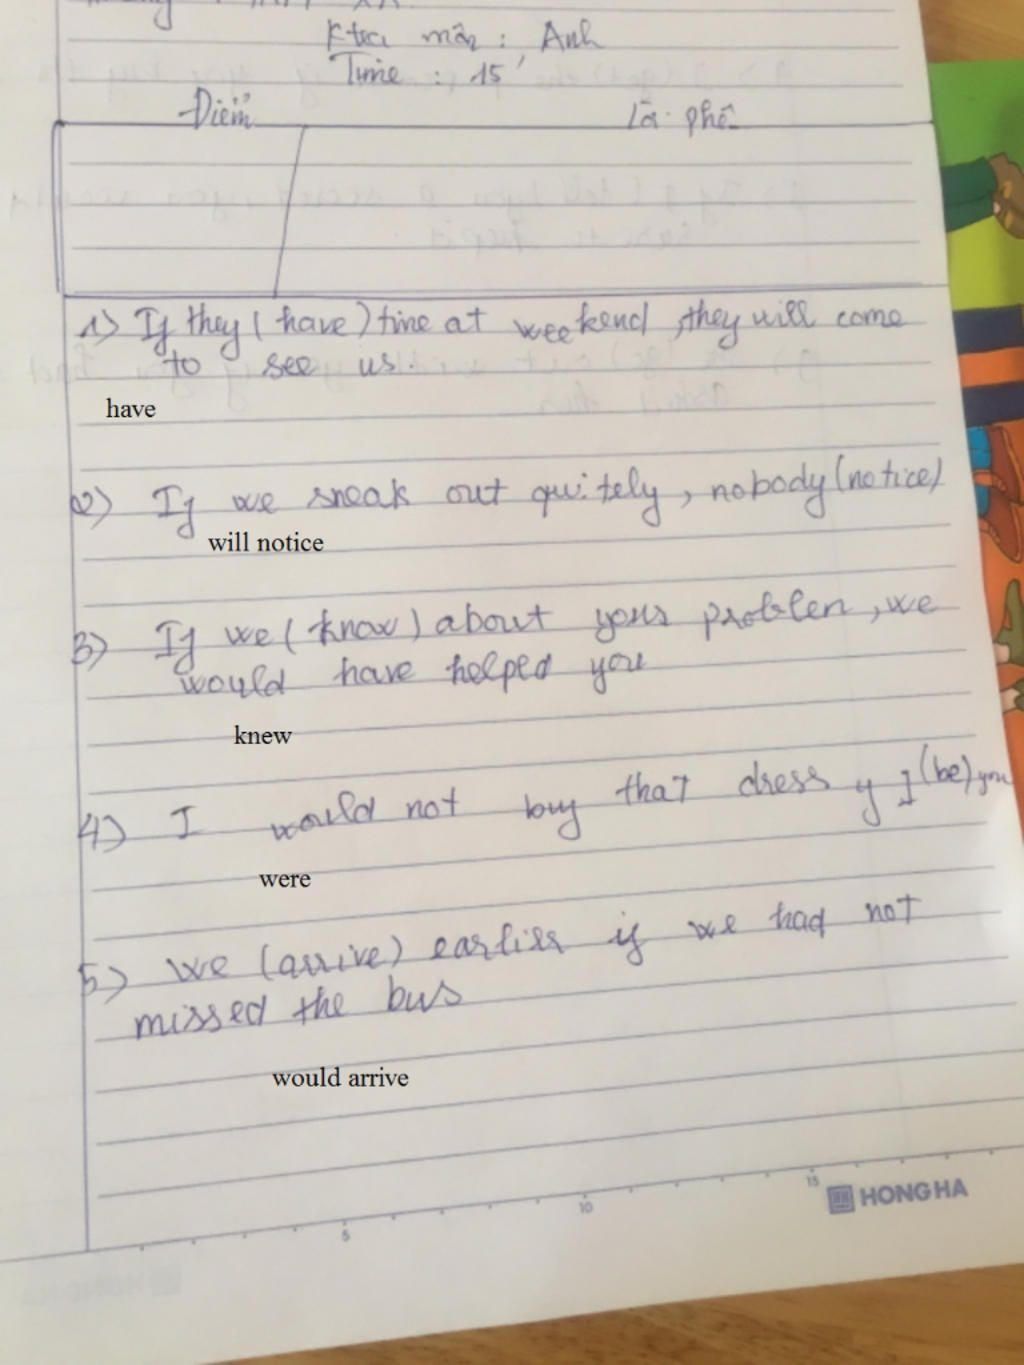 Ktra môn : Anh
Time : 15'
Điểm Lời phê
1) If they ( have ) time at weekend , they will come
to see us.
have
2) If we sneak out quitely , nobody (notice)
will notice
3) If we ( know ) about your problem , we
would have helped you
knew
4) I would not buy that dress if I (be) you
were
5) we (arrive) earlier if we had not
missed the bus
would arrive
5 10 15
HONG HA